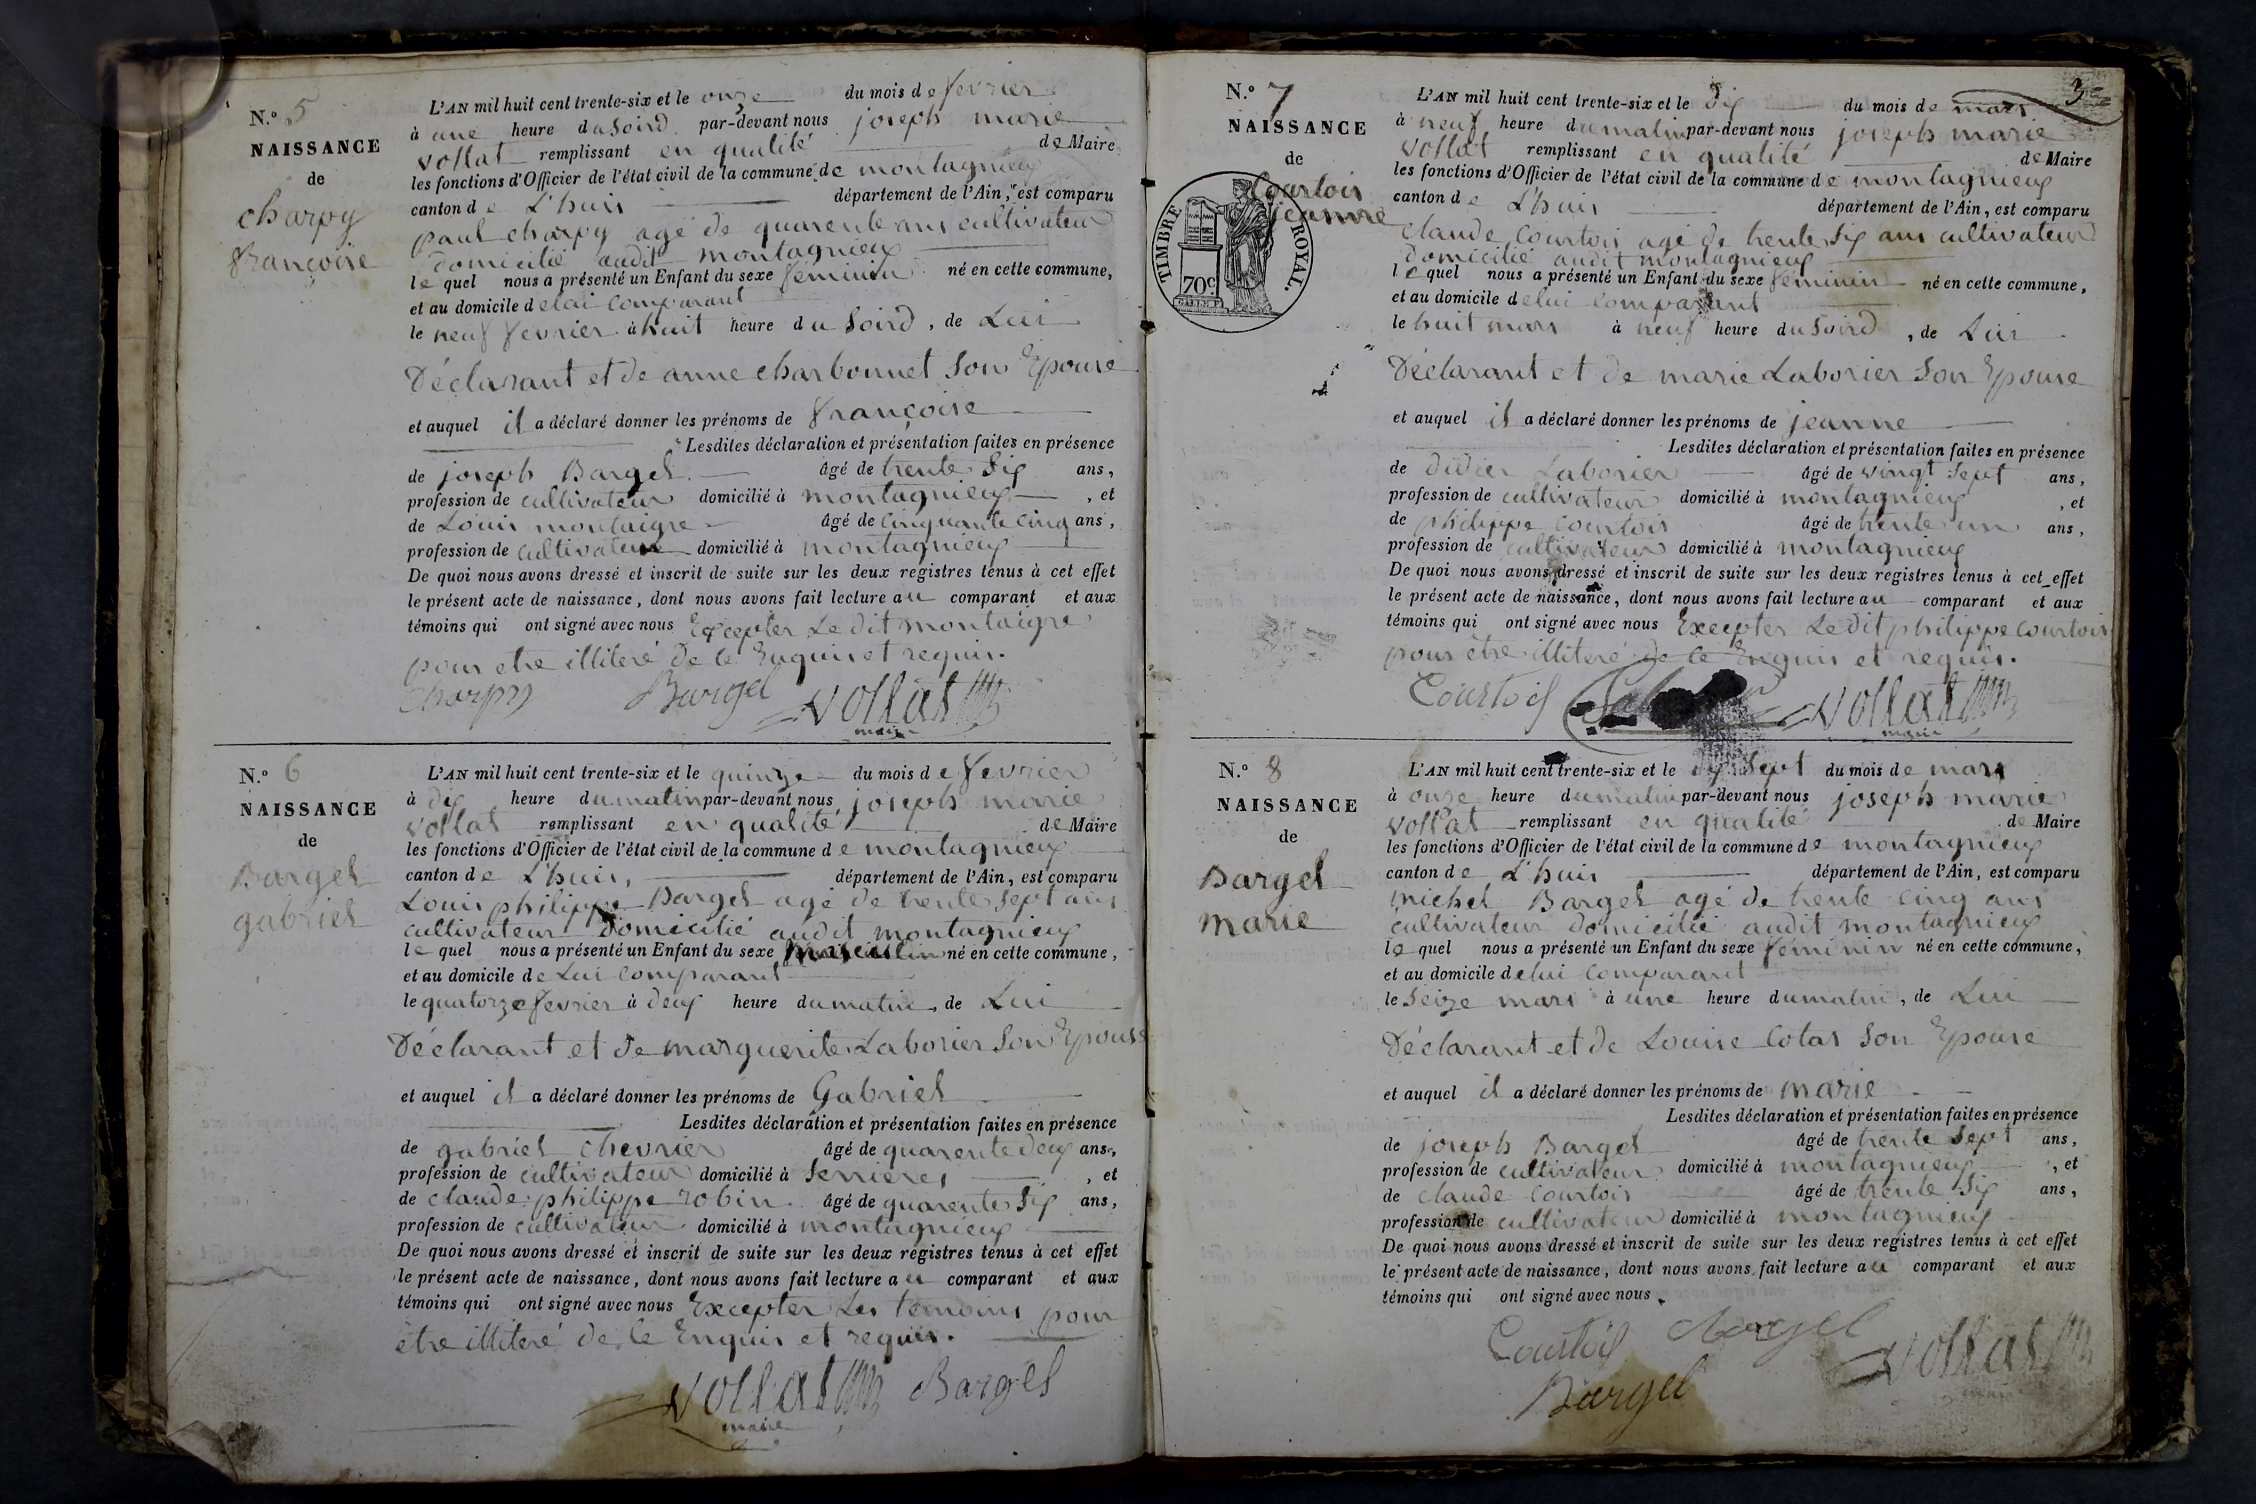 N.° 5
NAISSANCE
de
charpy
françoise
L'AN mil huit cent trente-six et le onze du mois de fevrier
à une heure du soird par-devant nous joseph marie
vollat remplissant en qualité de Maire
les fonctions d'Officier de l'état civil de la commune de montagnieux
canton de L'huis département de l'Ain, est comparu
paul charpy agé de quarente ans cultivateur
domicilié audit montagnieux
le quel nous a présenté un Enfant du sexe féminin né en cette commune,
et au domicile de lui comparant
le neuf fevrier à huit heure du soird, de Lui
Déclarant et de anne charbonnet Son Epouse
et auquel il a déclaré donner les prénoms de françoise
Lesdites déclaration et présentation faites en présence
de joseph Bargel âgé de trente six ans,
profession de cultivateur domicilié à montagnieux, et
de Louis montaigre âgé de cinquante cinq ans,
profession de cultivateur domicilié à montagnieux
De quoi nous avons dressé et inscrit de suite sur les deux registres tenus à cet effet
le présent acte de naissance, dont nous avons fait lecture au comparant et aux
témoins qui ont signé avec nous Excepter Le dit montaigre
pour etre illiteré de ce Enquis et requis.
charpy Bargel vollat
maire
N.° 6
NAISSANCE
de
Bargel
gabriel
L'AN mil huit cent trente-six et le quinze du mois de fevrier
à dix heure du matin par-devant nous joseph marie
vollat remplissant en qualité de Maire
les fonctions d'Officier de l'état civil de la commune de montagnieux
canton de L'huis, département de l'Ain, est comparu
Louis philippe Bargel agé de trente sept ans
cultivateur domicilié audit montagnieux
le quel nous a présenté un Enfant du sexe masculin né en cette commune,
et au domicile de Lui comparant
le quatorze fevrier à deux heure du matin, de Lui
Déclarant et de marguerite Laborier Son Epouse
et auquel il a déclaré donner les prénoms de Gabriel
Lesdites déclaration et présentation faites en présence
de gabriel chevrier âgé de quarente deux ans,
profession de cultivateur domicilié à Serrieres, et
de claude philippe robin âgé de quarente six ans,
profession de cultivateur domicilié à montagnieux
De quoi nous avons dressé et inscrit de suite sur les deux registres tenus à cet effet
le présent acte de naissance, dont nous avons fait lecture au comparant et aux
témoins qui ont signé avec nous Excepter Les temoins pour
être illiteré de ce Enquis et requis.
vollat Bargel
maire
3
N.° 7
NAISSANCE
de
Courtois
jeanne
TIMBRE ROYAL.
70c
L'AN mil huit cent trente-six et le dix du mois de mars
à neuf heure du matin par-devant nous joseph marie
vollat remplissant en qualité de Maire
les fonctions d'Officier de l'état civil de la commune de montagnieux
canton de L'huis département de l'Ain, est comparu
claude Courtois agé de trente six ans cultivateur
domicilié audit montagnieux
le quel nous a présenté un Enfant du sexe féminin né en cette commune,
et au domicile de lui comparant
le huit mars à neuf heure du soird, de Lui
Déclarant et de marie Laborier Son Epouse
et auquel il a déclaré donner les prénoms de jeanne
Lesdites déclaration et présentation faites en présence
de didier Laborier âgé de vingt sept ans,
profession de cultivateur domicilié à montagnieux, et
de philippe courtois âgé de trente un ans,
profession de cultivateur domicilié à montagnieux
De quoi nous avons dressé et inscrit de suite sur les deux registres tenus à cet effet
le présent acte de naissance, dont nous avons fait lecture au comparant et aux
témoins qui ont signé avec nous Excepter Le dit philippe courtois
pour être illiteré de ce Enquis et requis.
Courtois vollat
maire
N.° 8
NAISSANCE
de
Bargel
marie
L'AN mil huit cent trente-six et le dix sept du mois de mars
à onze heure du matin par-devant nous joseph marie
vollat remplissant en qualité de Maire
les fonctions d'Officier de l'état civil de la commune de montagnieux
canton de L'huis département de l'Ain, est comparu
michel Bargel agé de trente cinq ans
cultivateur domicilié audit montagnieux
le quel nous a présenté un Enfant du sexe féminin né en cette commune,
et au domicile de lui comparant
le Seize mars à une heure du matin, de Lui
Déclarant et de Louise Cotas Son Epouse
et auquel il a déclaré donner les prénoms de marie
Lesdites déclaration et présentation faites en présence
de joseph Bargel âgé de trente sept ans,
profession de cultivateur domicilié à montagnieux, et
de claude courtois âgé de trente six ans,
profession de cultivateur domicilié à montagnieux
De quoi nous avons dressé et inscrit de suite sur les deux registres tenus à cet effet
le présent acte de naissance, dont nous avons fait lecture au comparant et aux
témoins qui ont signé avec nous.
Courtois Bargel vollat
Bargel maire